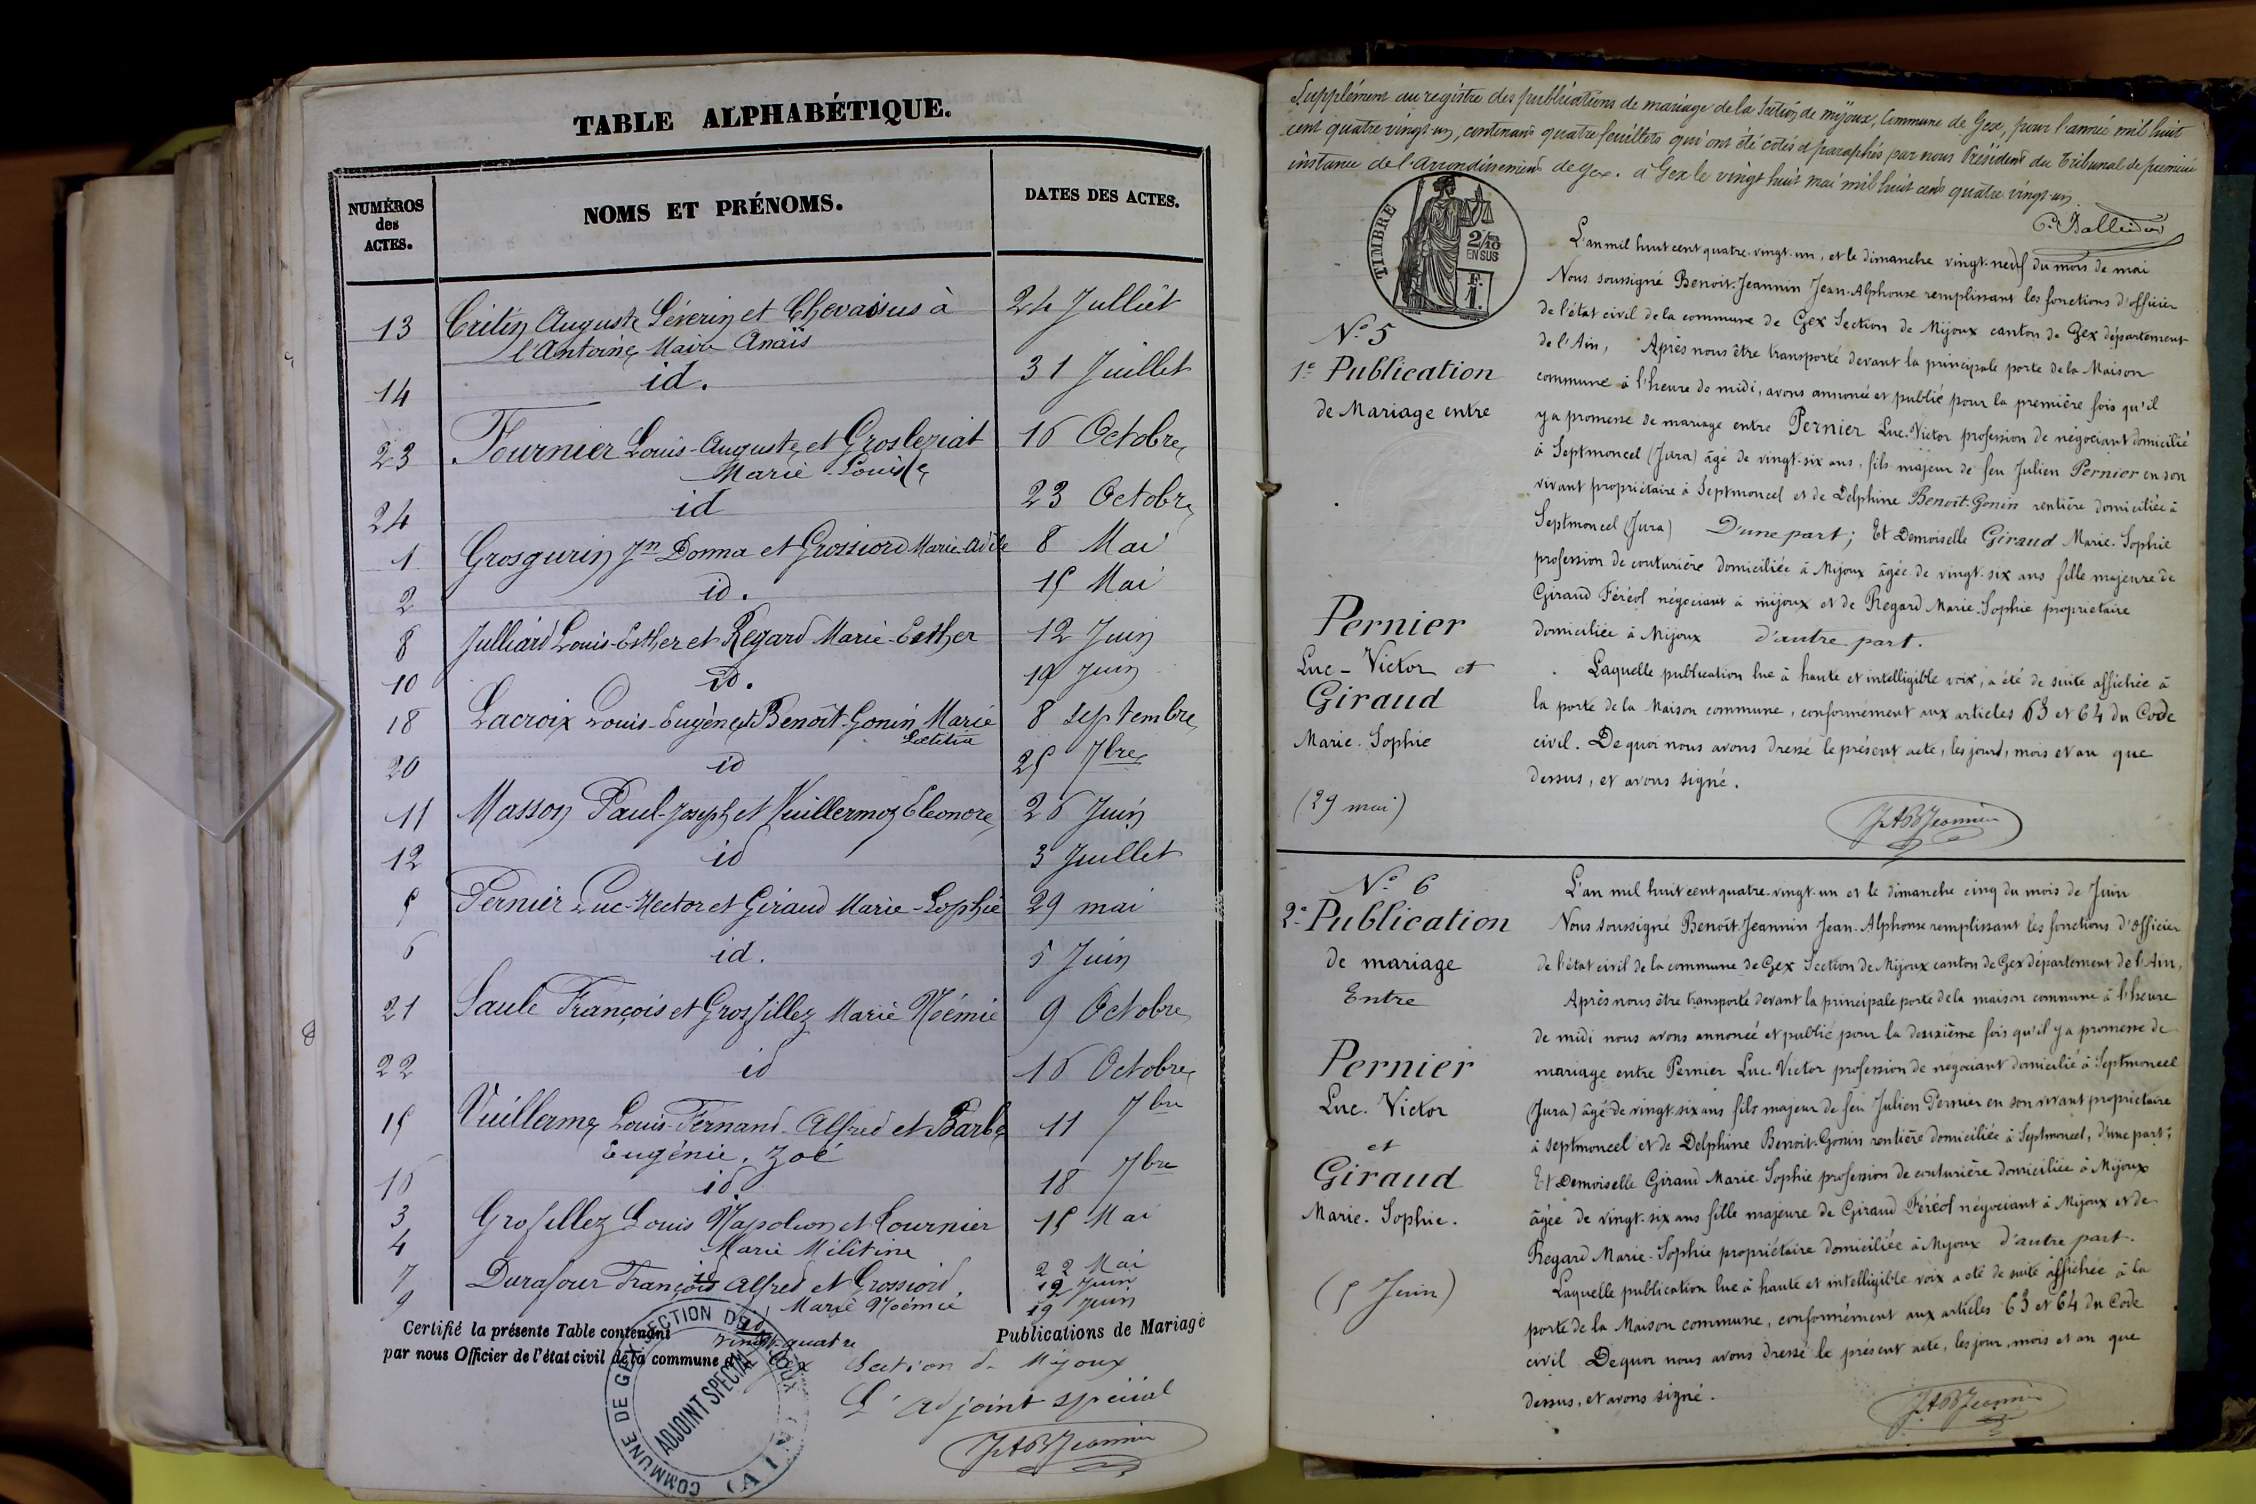 TABLE ALPHABÉTIQUE.
NUMÉROS
des
ACTES.
NOMS ET PRÉNOMS.
DATES DES ACTES.
13 Critin Auguste Séverin et Chevassus à 24 Julliet
l'Antoine Marie Anaïs
14 id. 31 Juillet
23 Fournier Louis-Auguste et Grosleziat 16 Octobre
Marie-Louise
24 id 23 Octobre
1 Grosgurin Jn Donna et Grossiord Marie-Adèle 8 Mai
2 id. 15 Mai
8 Julliard Louis-Esther et Regard Marie-Esther 12 Juin
10 id. 19 Juin
18 Lacroix Louis-Eugène et Benoît-Gonin Marie 8 septembre
Lætitia
20 id 25 7bre
11 Masson Paul-Joseph et Vuillermoz Eleonore 26 Juin
12 id 3 Juillet
5 Pernier Luc-Hector et Giraud Marie-Sophie 29 mai
6 id. 5 Juin
21 Saule François et Grosfillez Marie Noémie 9 Octobre
22 id 16 Octobre
15 Vuillerme Louis-Fernand-Alfred et Barbe 11 7bre
Eugénie. Zoé
16 id. 18 7bre
3 Grosfillez Louis Napoléon et Tournier 15 Mai
Marie Militine
4 id 22 Mai
7 Durafour François Alfred et Grossiord 12 Juin
Marie Noémie
9 id 19 Juin
Certifié la présente Table contenant vingt-quatre Publications de Mariage
par nous Officier de l'état civil de la commune de Gex Section de Mijoux
L'adjoint spécial
JABJeannin
COMMUNE DE GEX SECTION DE MIJOUX
ADJOINT SPECIAL
(AIN)
Supplément au registre des publications de mariage de la Section de mijoux, Commune de Gex, pour l'année mil huit
cent quatre vingt-un, contenant quatre feuillets qui ont été cotés et paraphés par nous Président du Tribunal de première
instance de l'arrondissement de Gex. à Gex le vingt huit mai mil huit cent quatre vingt-un.
TIMBRE
2/10
EN SUS
F.
1.
L'an mil huit cent quatre-vingt-un, et le dimanche vingt-neuf du mois de mai
Nous soussigné Benoit-Jeannin Jean-Alphonse remplissant les fonctions d'officier
de l'état civil de la commune de Gex Section de Mijoux canton de Gex département
de l'Ain, Après nous être transporté devant la principale porte de la Maison
commune à l'heure de midi, avons annoncé et publié pour la première fois qu'il
y a promesse de mariage entre Pernier Luc-Victor profession de négociant domicilié
à Septmoncel (Jura) âgé de vingt-six ans, fils majeur de feu Julien Pernier en son
vivant propriétaire à Septmoncel et de Delphine Benoit-Gonin rentière domiciliée à
Septmoncel (Jura) D'une part; Et Demoiselle Giraud Marie-Sophie
profession de couturière domiciliée à Mijoux âgée de vingt-six ans fille majeure de
Giraud Féréol négociant à mijoux et de Regard Marie-Sophie propriétaire
domiciliée à Mijoux d'autre part.
Laquelle publication lue à haute et intelligible voix, a été de suite affichée à
la porte de la Maison commune, conformément aux articles 63 et 64 du Code
civil. De quoi nous avons dressé le présent acte, les jours, mois et an que
dessus, et avons signé.
JABJeannin
No. 5
1e Publication
de Mariage entre
Pernier
Luc-Victor et
Giraud
Marie-Sophie
(29 mai)
No. 6
2e Publication
de mariage
Entre
Pernier
Luc. Victor
et
Giraud
Marie. Sophie.
(5 Juin)
L'an mil huit cent quatre-vingt-un et le dimanche cinq du mois de Juin
Nous soussigné Benoît-Jeannin Jean-Alphonse remplissant les fonctions d'officier
de l'état civil de la commune de Gex Section de Mijoux canton de Gex département de l'Ain,
Après nous être transporté devant la principale porte de la maison commune à l'heure
de midi nous avons annoncé et publié pour la deuxième fois qu'il y a promesse de
mariage entre Pernier Luc. Victor profession de négociant domicilié à Septmoncel
(Jura) âgé de vingt-six ans fils majeur de feu Julien Pernier en son vivant propriétaire
à septmoncel et de Delphine Benoit-Gonin rentière domiciliée à Septmoncel, d'une part;
Et Demoiselle Giraud Marie Sophie profession de couturière domiciliée à Mijoux
âgée de vingt-six ans fille majeure de Giraud Féréol négociant à Mijoux et de
Regard Marie-Sophie propriétaire domiciliée à Mijoux d'autre part.
Laquelle publication lue à haute et intelligible voix a été de suite affichée à la
porte de la Maison commune, conformément aux articles 63 et 64 du Code
civil De quoi nous avons dressé le présent acte, les jour, mois et an que
dessus, et avons signé.
JABJeannin